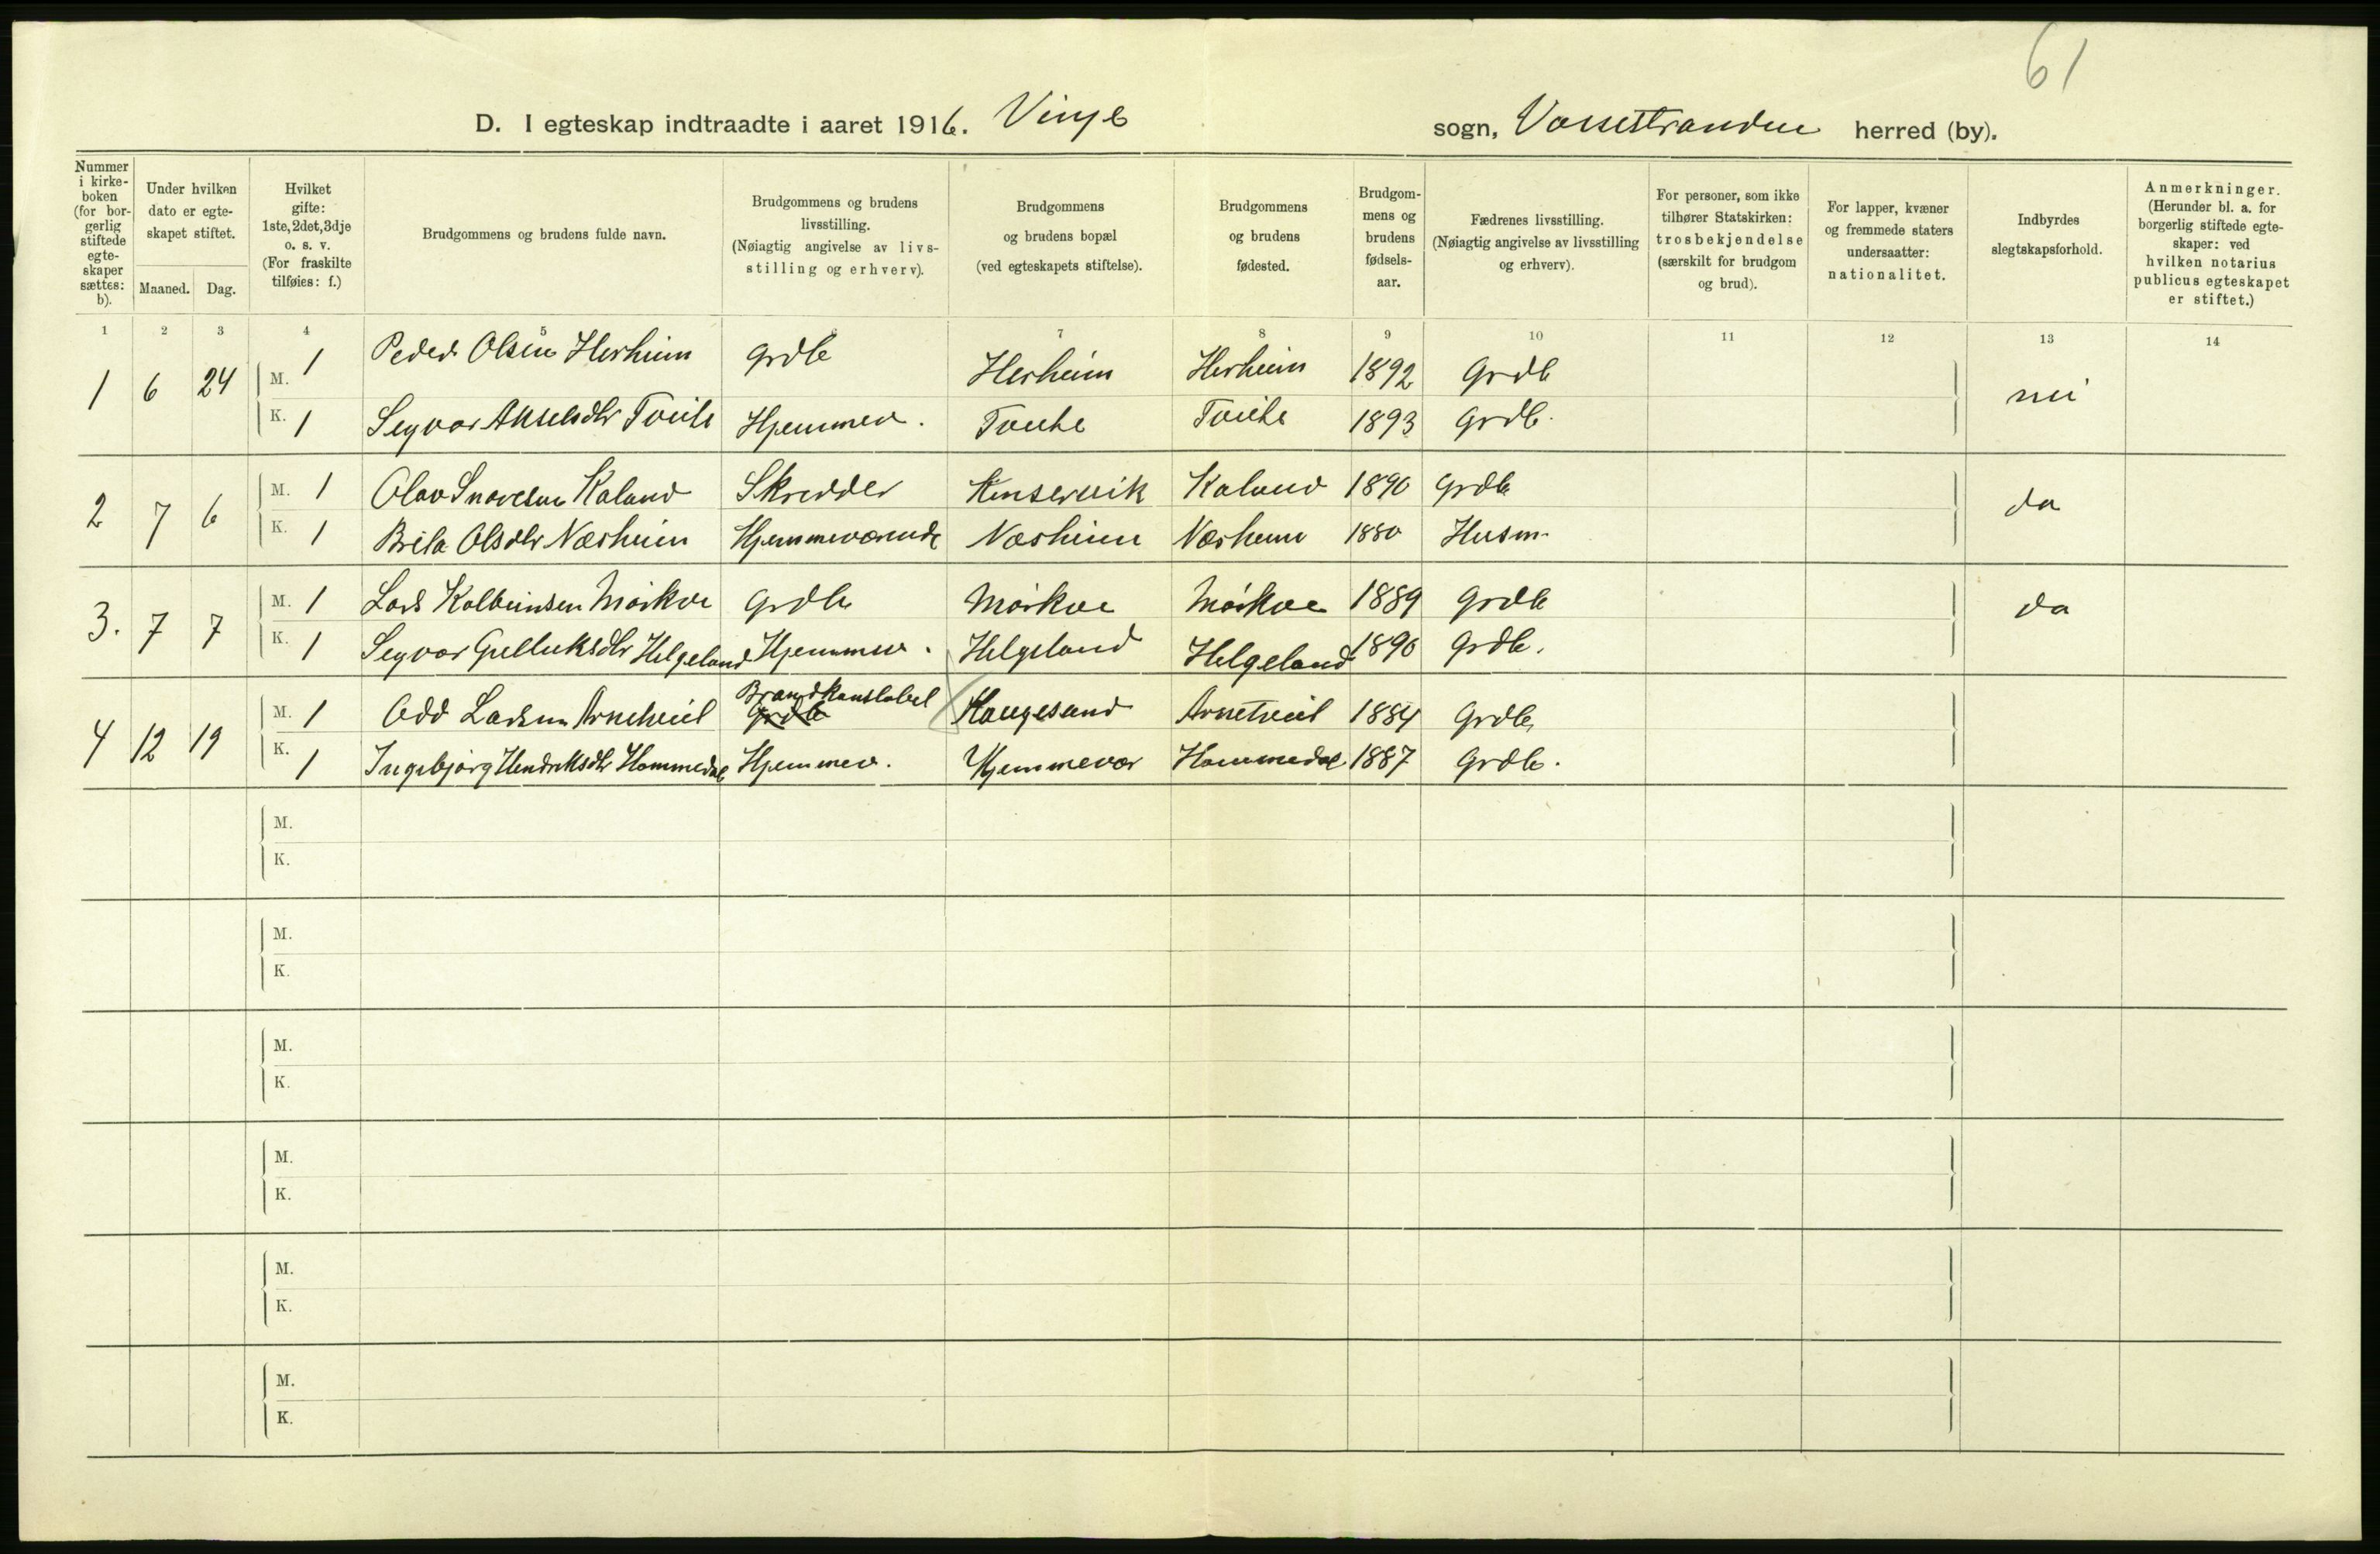 61
D. I egteskap indtraadte i aaret 1916. Vinje sogn, Vossestranden herred (by).
Nummer i kirke-boken (for bor-gerlig stiftede egte-skaper sættes: b).
Under hvilken dato er egte-skapet stiftet.
Maaned. Dag.
Hvilket gifte: 1ste, 2det, 3dje o. s. v. (For fraskilte tilføies: f.)
Brudgommens og brudens fulde navn.
Brudgommens og brudens livsstilling. (Nøiagtig angivelse av livs-stilling og erhverv).
Brudgommens og brudens bopæl (ved egteskapets stiftelse).
Brudgommens og brudens fødested.
Brudgom-mens og brudens fødsels-aar.
Fædrenes livsstilling. (Nøiagtig angivelse av livsstilling og erhverv).
For personer, som ikke tilhører Statskirken: trosbekjendelse (særskilt for brudgom og brud).
For lapper, kvæner og fremmede staters undersaatter: nationalitet.
Indbyrdes slegtskapsforhold.
Anmerkninger. (Herunder bl. a. for borgerlig stiftede egte-skaper: ved hvilken notarius publicus egteskapet er stiftet.)
1 2 3 4 5 6 7 8 9 10 11 12 13 14
1 6 24 M. 1 Peder Olsen Herheim Grdb Herheim Herheim 1892 Grdb nei
K. 1 Seyvor Akselsdtr Tvite Hjemmev. Tvite Tvite 1893 Grdb.
2 7 6 M. 1 Olav Kaland Skredder Kinservik Kaland 1890 Grdb da
K. 1 Brita Olsdtr Næsheim Hjemmeværende Næsheim Næsheim 1880 Husm.
3. 7 7 M. 1 Lars Kolbeinsen Mørkve Grdb Mørkve Mørkve 1889 Grdb da
K. 1 Seyvor Gulleiksdtr Helgeland Hjemmev. Helgeland Helgeland 1890 Grdb.
4 12 19 M. 1 Odd Larsen Arnetveit Brandkonstabel Grdb Haugesund Arnetveit 1884 Grdb,
K. 1 Ingebjørg Hendriksdtr Hommedal Hjemmev. Hjemmevær Hommedal 1887 Grdb.
M.
K.
M.
K.
M.
K.
M.
K.
M.
K.
M.
K.